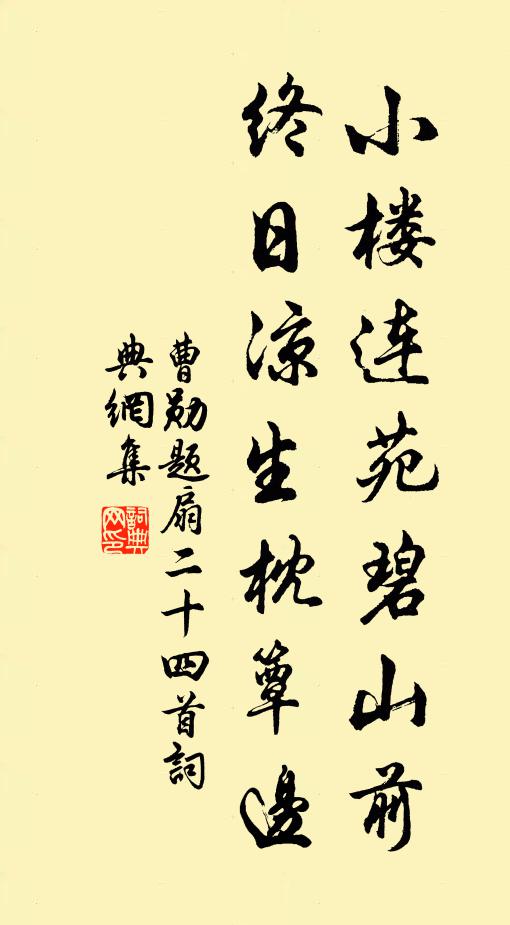 小楼连苑碧山前
终日凉生枕簟邊
曹勋题扇二十四首詞
典網集
詞典網印